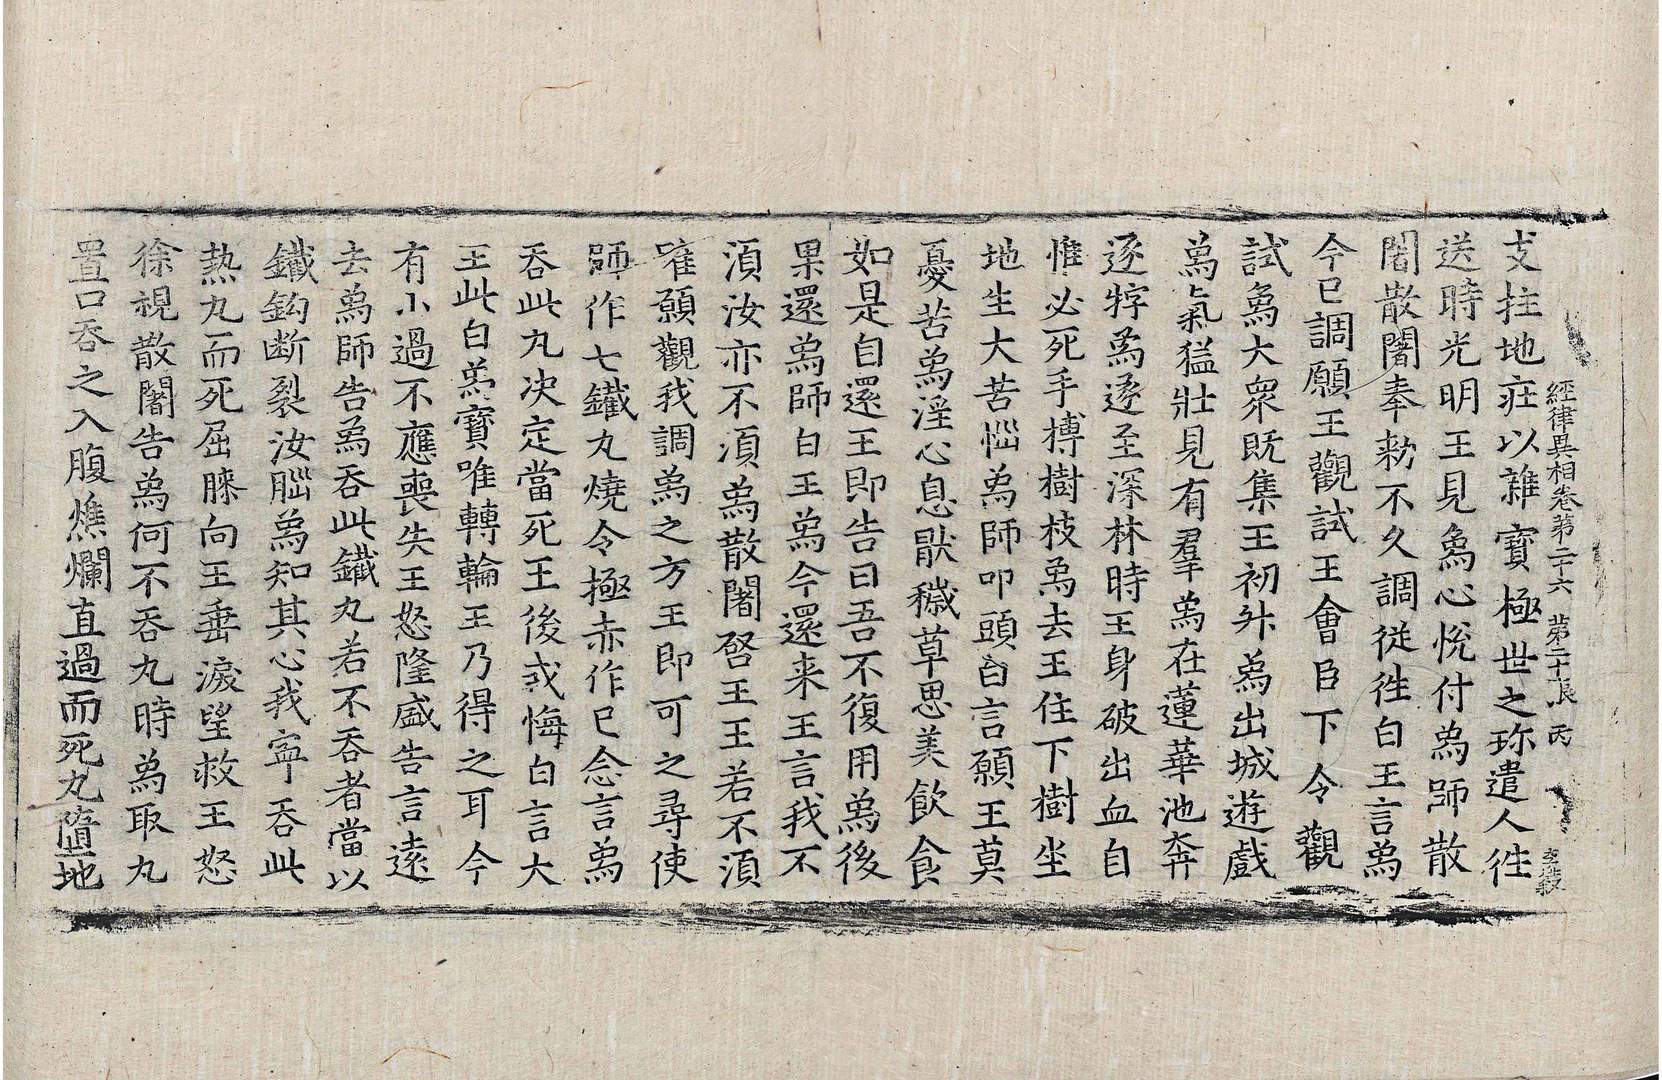 支拄地𤵜以雜寶極世之珎遣人徃
經律異相卷第二十六 第二十張 丙
送時光明王見象心悅付象師散
闍散闍奉勑不久調從徃白王言象
今已調願王觀試王會臣下令觀
試象大衆既集王初升象出城遊戲
象氣猛壯見有羣象在蓮華池奔
逐牸象遂至深林時王身破出血自
惟必死手搏樹枝象去王住下樹坐
地生大苦惱象師叩頭白言願王莫
憂苦象淫心息猒穢草思美飲食
如是自還王即告曰吾不復用象後
果還象師白王象今還来王言我不
湏汝亦不湏象散闍啓王王若不湏
唯願觀我調象之方王即可之尋使
師作七鐵丸燒令極赤作已念言象
吞此丸决定當死王後或悔白言大
王此白象寶唯轉輪王乃得之耳今
有小過不應喪失王怒隆盛告言遠
去象師告象吞此鐵丸若不吞者當以
鐵鈎断裂汝腦象知其心我寜吞此
熱丸而死屈膝向王垂淚望救王怒
徐視散闍告象何不吞丸時象取丸
置口吞之入腹燋爛直過而死丸墮地